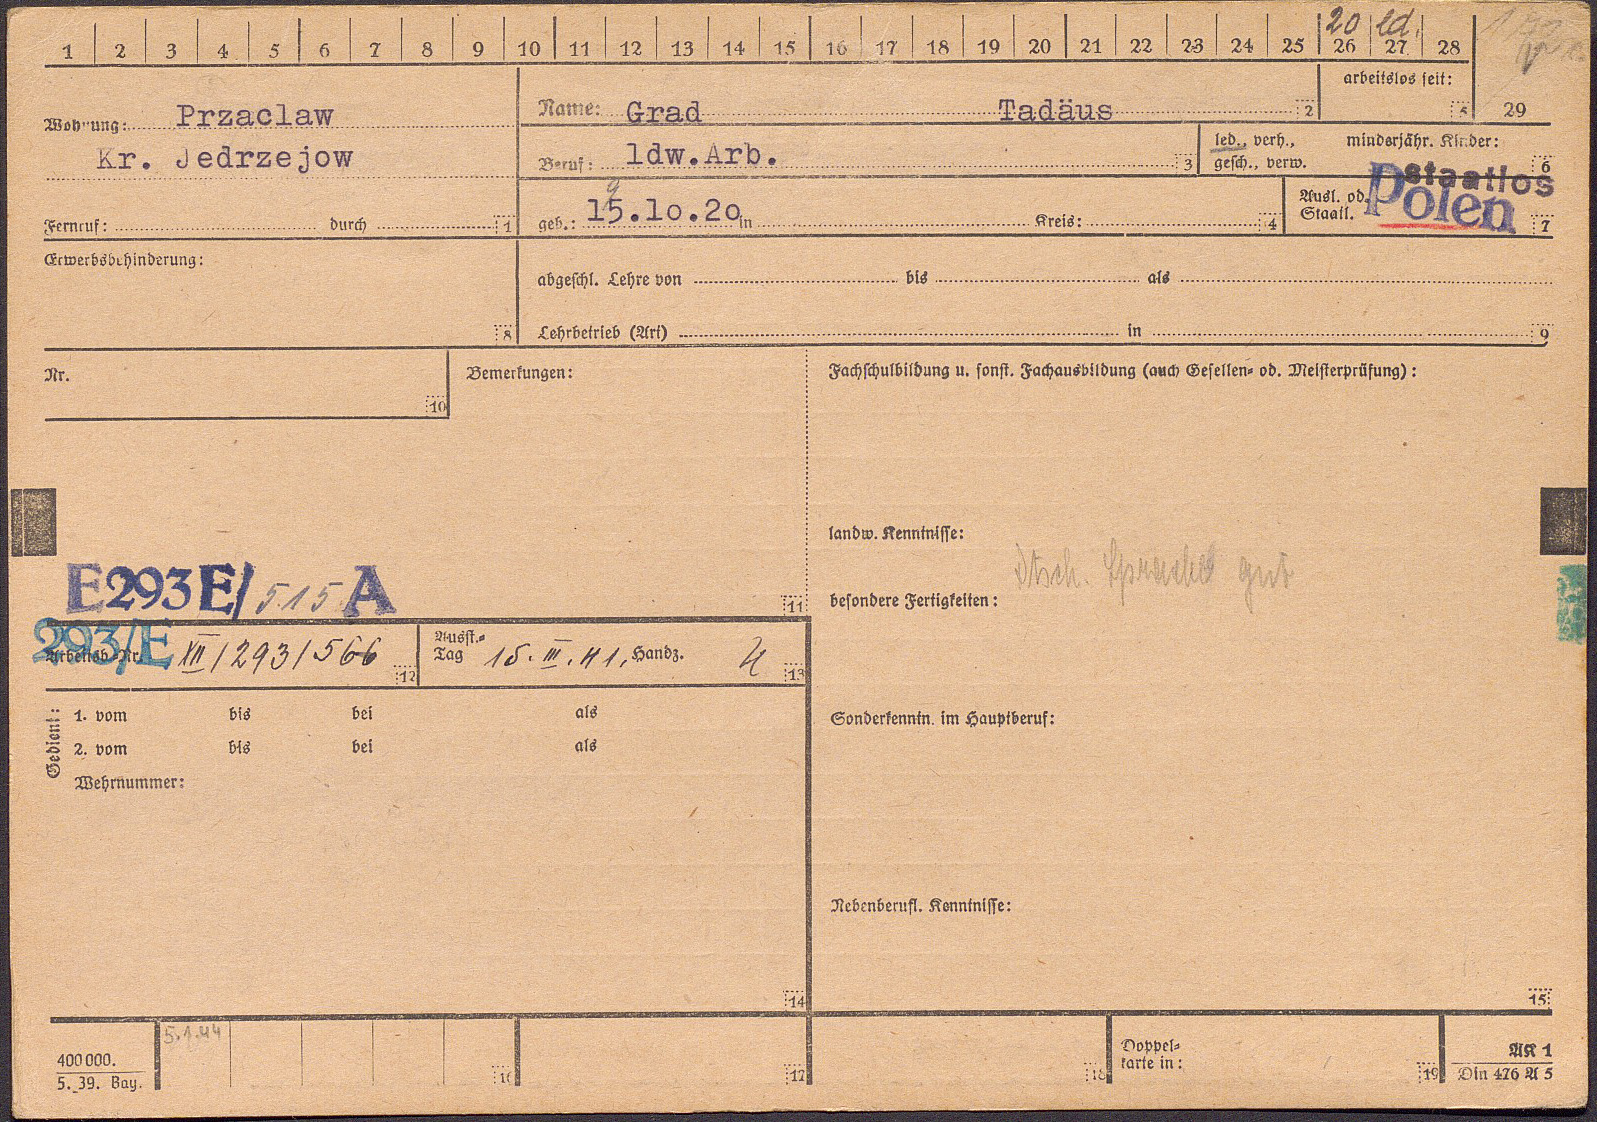 20 ld.
1 2 3 4 5 6 7 8 9 10 11 12 13 14 15 16 17 18 19 20 21 22 23 24 25 26 27 28
arbeitslos seit:
5 29
Wohnung: Przaclaw
Kr. Jedrzejow
Name: Grad Tadäus 2
Beruf: ldw.Arb. 3
led., verh., minderjähr. Kinder:
gesch., verw. 6
Fernruf: durch 1
9
geb.: 15.10.20 in Kreis: 4
Ausl. od.
Staatl. 7
staatlos
Polen
Erwerbsbehinderung:
8
abgeschl. Lehre von bis als
Lehrbetrieb (Art) in 9
Nr.
10
Bemerkungen:
Fachschulbildung u. sonst. Fachausbildung (auch Gesellen- od. Meisterprüfung) :
landw. Kenntnisse:
Dtsch. Sprache gut
besondere Fertigkeiten :
E293E/515 A
11
293/E
Arbeitsb.-Nr. XII/293/566 12
Ausst.-
Tag 15.III.41, Handz. 13
Gedient:
1. vom bis bei als
2. vom bis bei als
Wehrnummer:
Sonderkenntn. im Hauptberuf:
Nebenberufl. Kenntnisse:
14
15
5.1.44
400 000.
5. 39. Bay.
16
17
18
Doppel-
karte in :
19
AK 1
Din 476 A 5